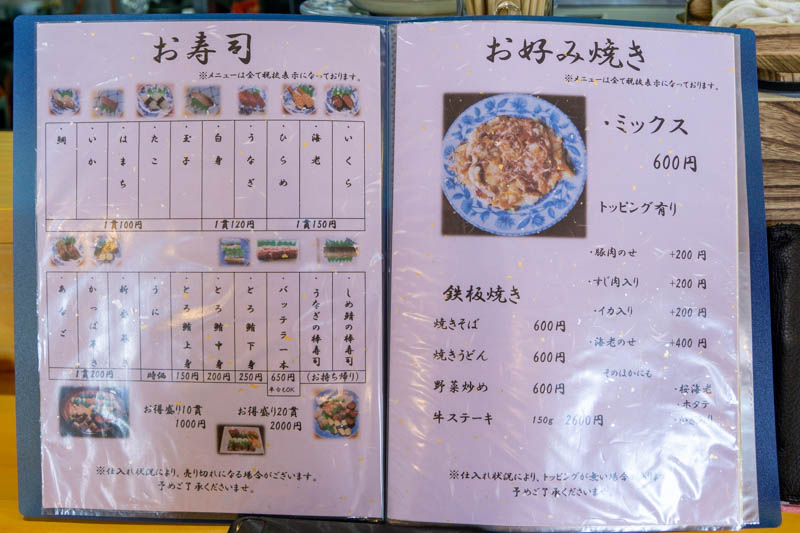 お寿司
※メニューは全て税抜表示になっております。
・いくら
・海老
・ひらめ
・うなぎ
・白身
・玉子
・たこ
・はまち
・いか
・鯛
1貫100円
1貫120円
1貫150円
・しめ鯖の棒寿司
・うなぎの棒寿司
・バッテラ一本
・とろ鮪下身
・とろ鮪中身
・とろ鮪上身
・うに
・新香巻き
・かっぱ巻き
・あなご
1貫200円
時価
150円
200円
250円
650円
半分もOK
(お持ち帰り)
お得盛り10貫
1000円
お得盛り20貫
2000円
※仕入れ状況により、売り切れになる場合がございます。
予めご了承くださいませ。
お好み焼き
※メニューは全て税抜表示になっております。
・ミックス
600円
トッピング有り
・豚肉のせ +200円
・すじ肉入り +200円
・イカ入り +200円
・海老のせ +400円
そのほかにも
・桜海老
・ホタテ
鉄板焼き
焼きそば 600円
焼きうどん 600円
野菜炒め 600円
牛ステーキ 150g 2600円
※仕入れ状況により、トッピングが無い場合
予めご了承くださいませ。